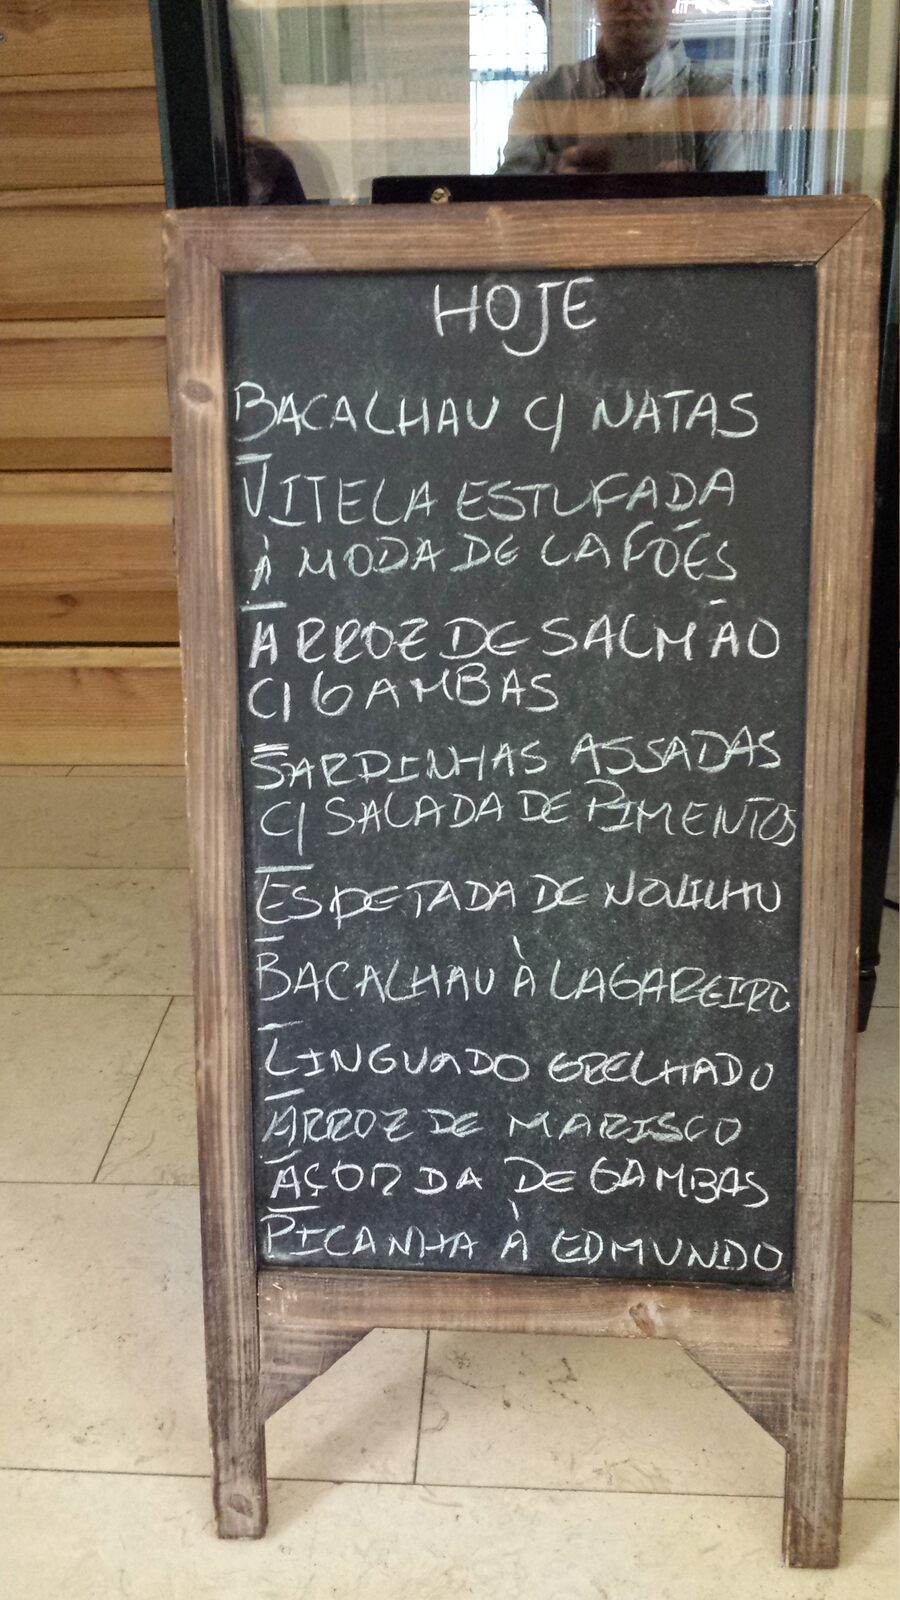 HOJE
BACALHAU C/ NATAS
VITELA ESTUFADA
À MODA DE LAFÕES
ARROZ DE SALMÃO
C/ GAMBAS
SARDINHAS ASSADAS
C/ SALADA DE PIMENTOS
ESPETADA DE NOVILHO
BACALHAU À LAGAREIRO
LINGUADO GRELHADO
ARROZ DE MARISCO
AÇORDA DE GAMBAS
PICANHA À EDMUNDO